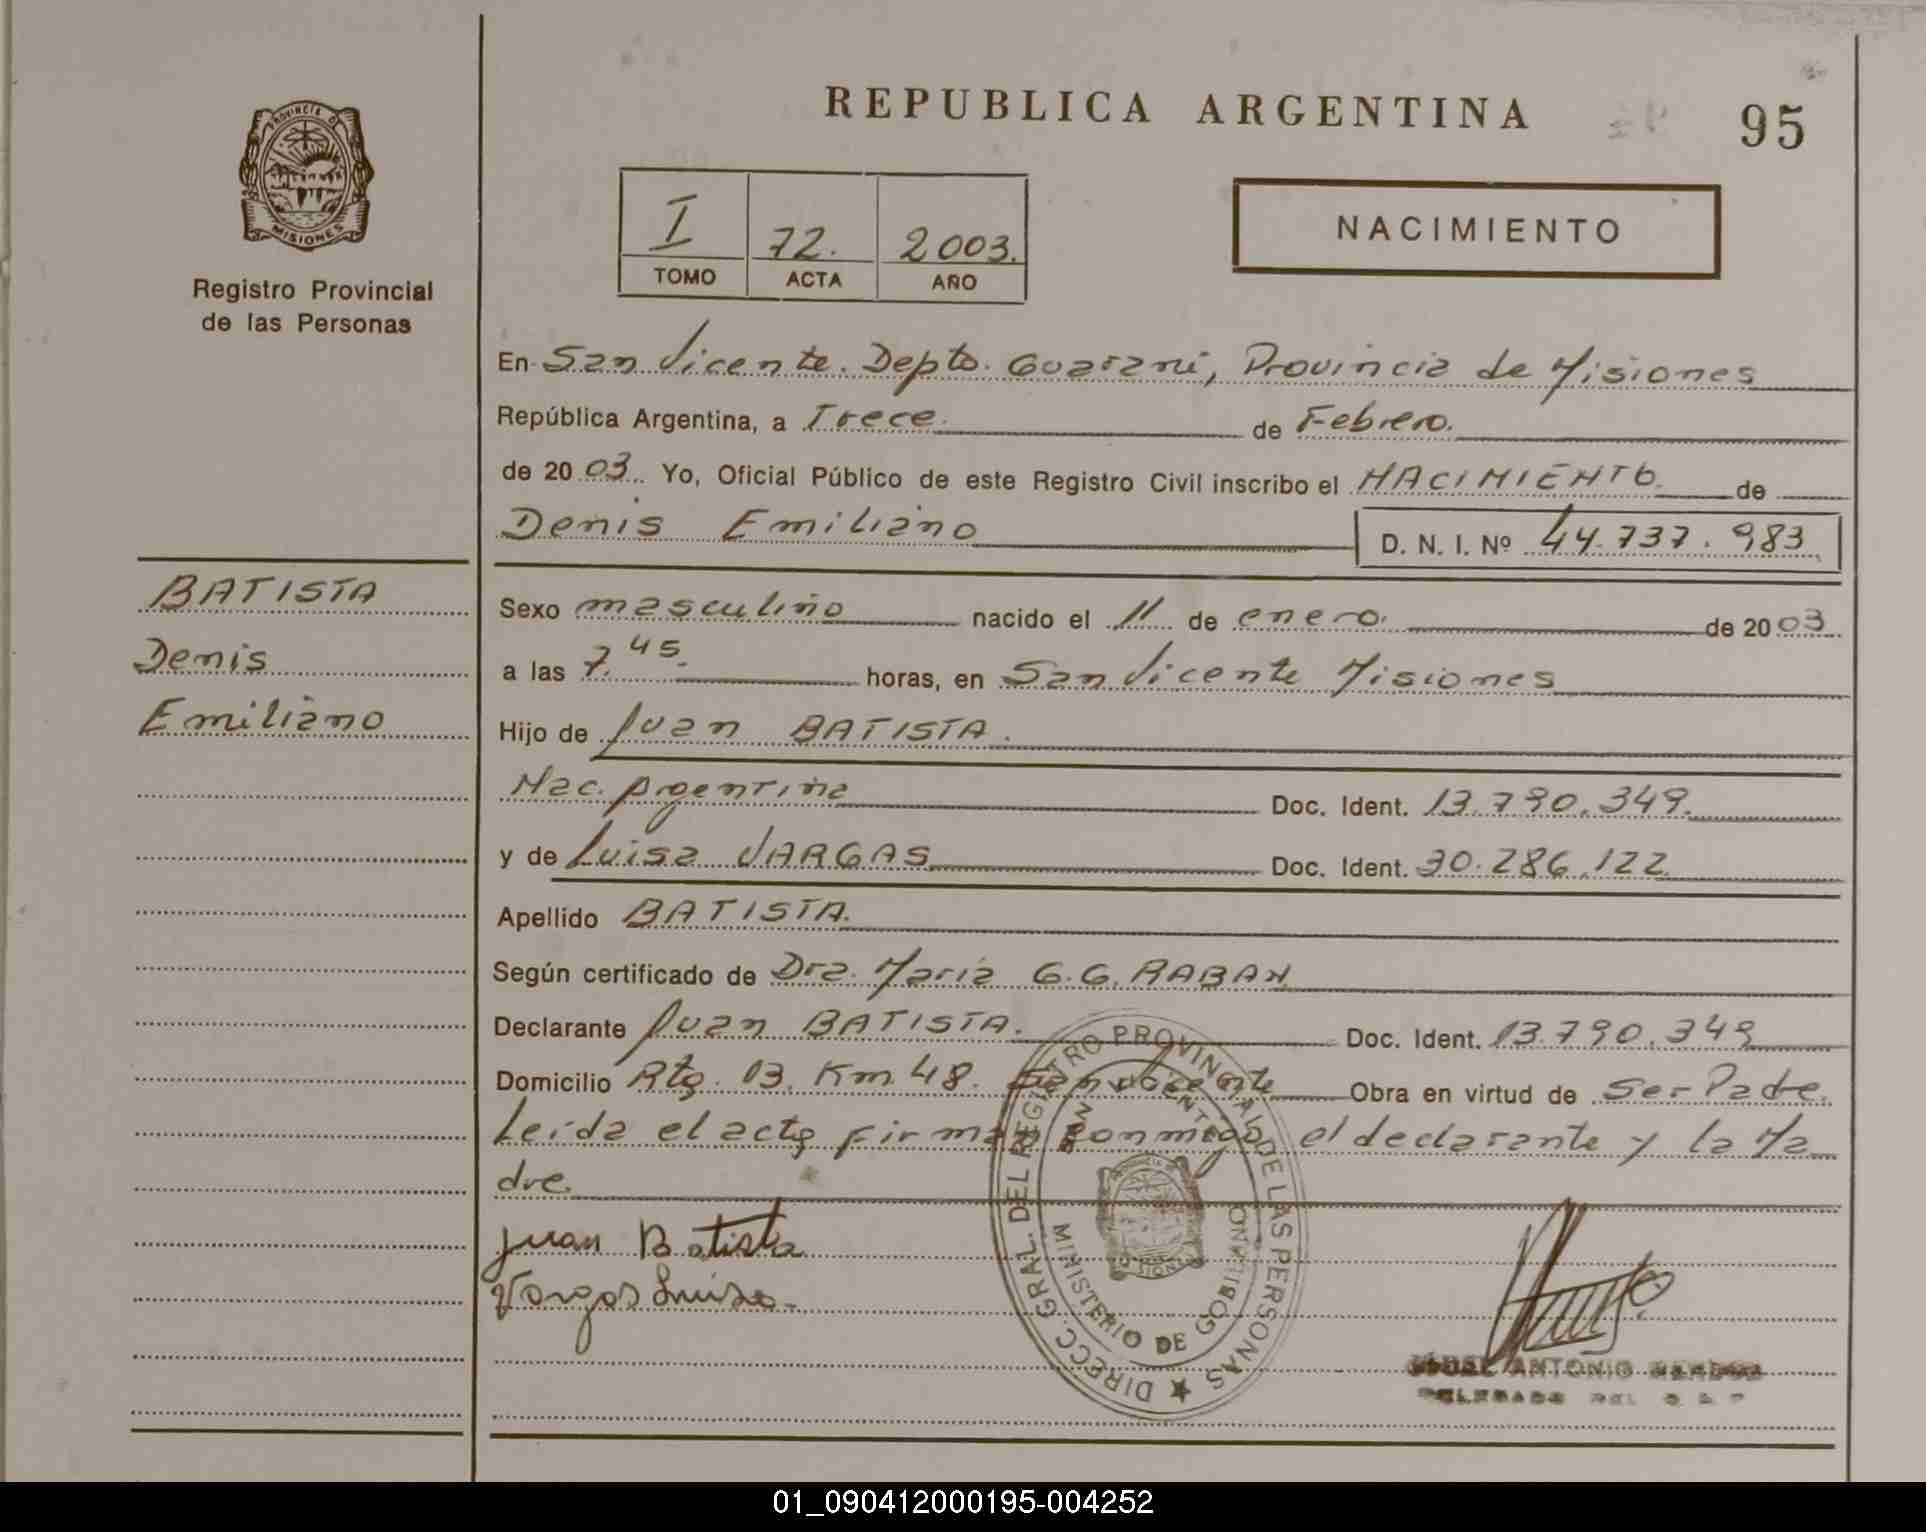 PROVINCIA DE
MISIONES
Registro Provincial
de las Personas
REPUBLICA ARGENTINA
95
I 72. 2003.
TOMO ACTA AÑO
NACIMIENTO
En San Vicente. Depto. Guaraní, Provincia de Misiones
República Argentina, a Trece. de Febrero.
de 2003. Yo, Oficial Público de este Registro Civil inscribo el NACIMIENTO de
Denis Emiliano D. N. I. Nº 44.737.983
BATISTA
Denis
Emiliano
Sexo masculino nacido el 11 de enero. de 2003
a las 7.45. horas, en San Vicente Misiones
Hijo de Juan BATISTA.
Nac. Argentina Doc. Ident. 13.790.349.
y de Luisa VARGAS Doc. Ident. 30.286.122
Apellido BATISTA.
Según certificado de Dra. Maria G. G. RABAN
Declarante Juan BATISTA. Doc. Ident. 13.790.349
Domicilio Rta. 13. Km 48. San Vicente Obra en virtud de Ser Padre.
Leida el acta firman conmigo el declarante y la Ma
dre.
Juan Batista
Vargas Luisa.
DIRECC. GRAL. DEL REGISTRO PROVINCIAL DE LAS PERSONAS
SAN VICENTE
MINISTERIO DE GOBIERNO
MISIONES
ANTONIO
DELEGADO DEL
01_090412000195-004252